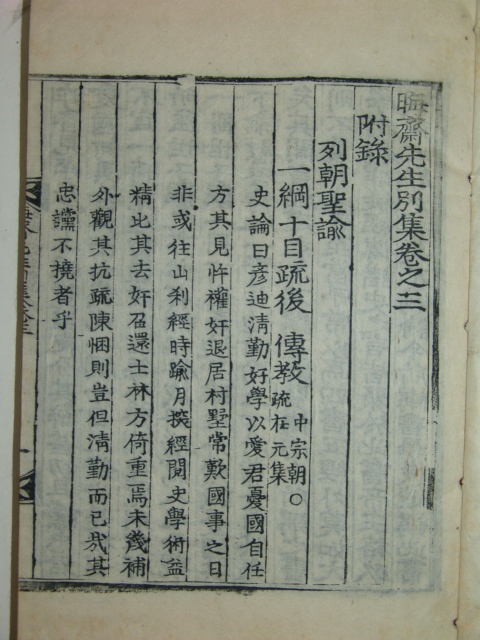 晦齋先生別集卷之三
附錄
列朝聖諭
一綱十目疏後 傳教 中宗朝○疏在元集
史論曰彦迪淸勤好學以愛君憂國自任
方其見忤權奸退居村墅常歎國事之日
非或往山刹經時踰月探經閱史學術益
精比其去奸召還士林方倚重焉未幾補
外觀其抗疏陳悃則豈但淸勤而已㢤其
忠讜不撓者乎